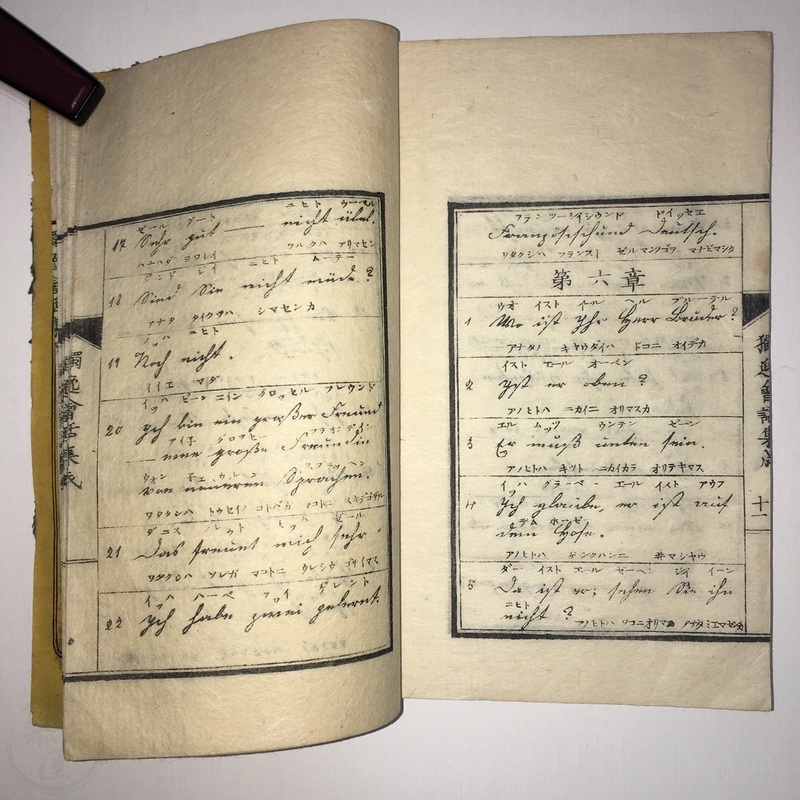 ニヒト ウーベル
ゼール グート
17 Sehr gut — nicht übel.
ハナハダ ヨロレイ ワルクハ アリマセン
ニヒト ムーデー
18 Sind Sie nicht müde?
アナタ タイクツハ シマセンカ
ニヒト
19 Noch nicht.
イイエ マダ
イッハ ビーン イン グロッセル フレウンド
20 Ich bin ein großer Freund
— eine große Freundin
von neueren Sprachen.
ワタクシハ トウセイノ コトバガ マコトニ
21 Das freuet mich sehr.
ワタクシハ ソレガ マコトニ ウレシウ ゴザイマス
イッハ ハーベ ツワイ ゲレント
22 Ich habe zwei gelernt.
獨逸會話集成
フランツーシイシウンド ドイッセエ
Französisch und Deutsch.
ワタクシハ フランス ゼルマンゴヲ マナビマシタ
第六章
ウオ イスト イール ヘル ブルーデル
1 Wo ist Ihr Herr Bruder?
アナタノ キャウダイハ ドコニ オイデカ
イスト エール オーベン
2 Ist er oben?
アノヒトハ ニカイニ オリマスカ
エル ムッツ ウンテン ゼーン
3 Er muß unten sein.
アノヒトハ キット ニカイカラ オリテキマス
イッハ グラーベー エール イスト アウフ
4 Ich glaube, er ist auf
デム ホーゼ
dem Hofe.
アノヒトハ ゲンクハンニ 井マシヤウ
ダー イスト エール ゼーヘン ジイ イーン
5 Da ist er; sehen Sie ihn
ニヒト
nicht?
アノヒトハ ソコニオリマス アナタミエマセンカ
獨逸會話集成
十一